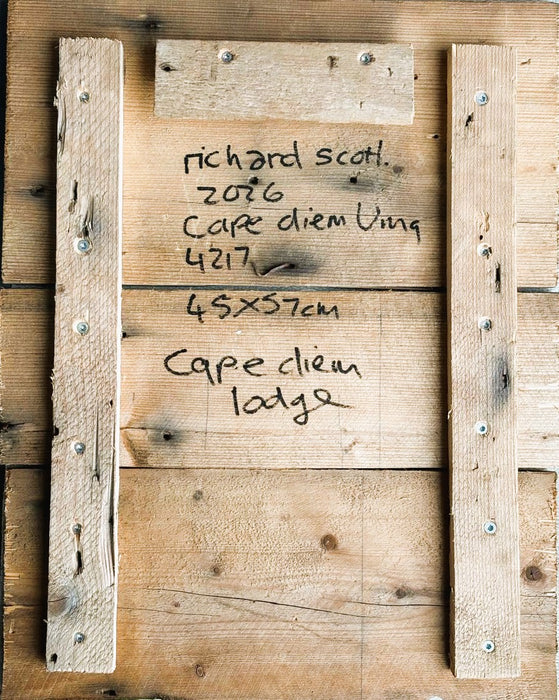 richard scott.
2026
Cape diem Ving
4217
45x57cm
Cape diem
lodge